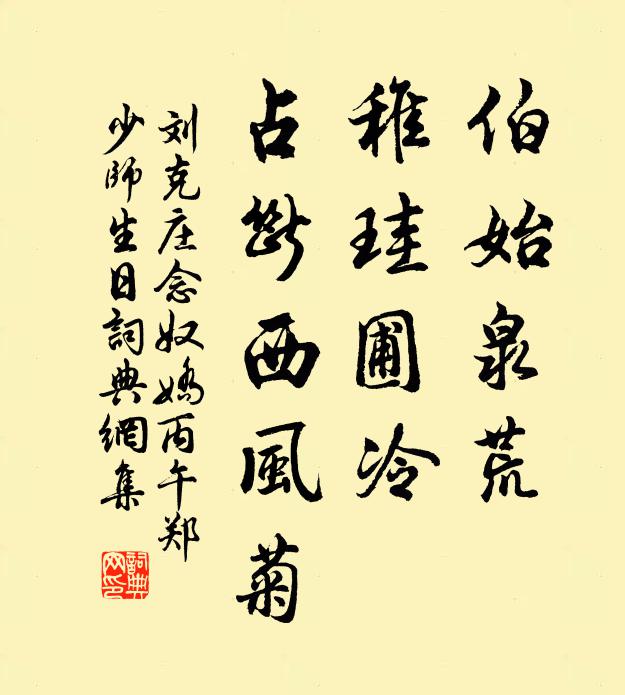 伯始泉荒
稚珪圃冷
占断西風菊
刘克庄念奴嬌丙午郑
少師生日詞典網集
詞典
网印